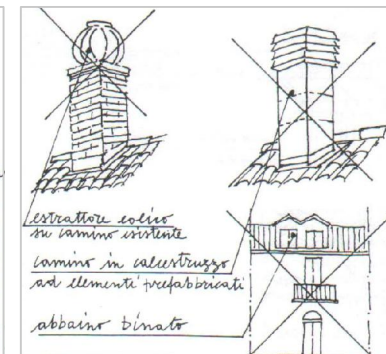 estrattore eolico
su camino esistente
camino in calcestruzzo
ad elementi prefabbricati
abbaino binato